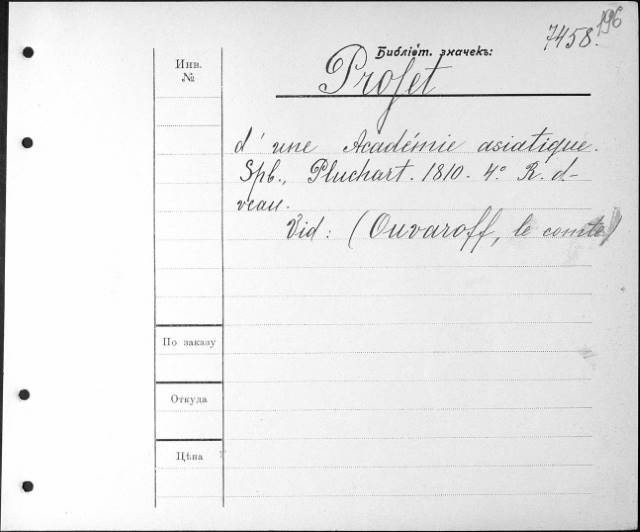 196
7458.
Библіот. значекъ:
Инв.
№
Projet
d'une Académie asiatique.
Spb., Pluchart. 1810. 4º R. d-
veau.
Vid: (Ouvaroff, le comte)
По заказу
Откуда
Цѣна